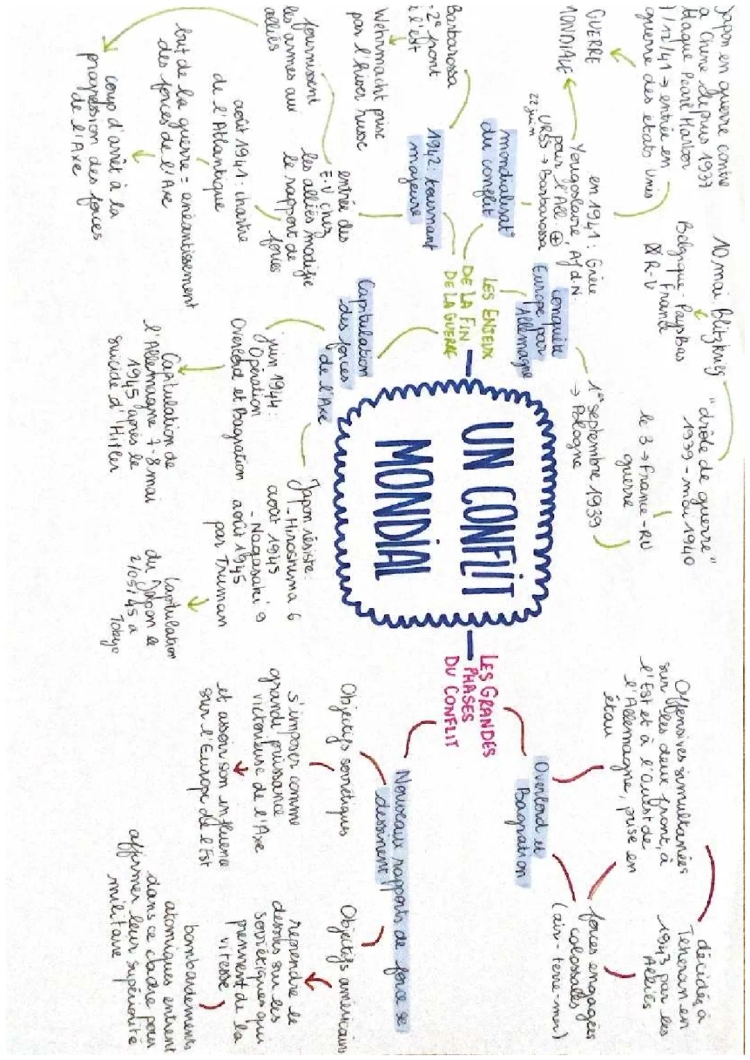 UN CONFLIT
MONDIAL
LES ENJEUX
DE LA FIN
DE LA GUERRE
conquête
Europe par
Allemagne
1er septembre 1939
→ Pologne
le 3 → France - RU
guerre
"drôle de guerre"
1939 - mai 1940
10 mai Blitzkrieg
Belgique - Pays Bas
France
R-U
en 1941 : Grèce
Yougoslavie, Af d. N.
pour l'All ⊕
22 juin
URSS → Barbarossa
mondialisat°
du conflit
Japon en guerre contre
la Chine depuis 1937
attaque Pearl Harbor
7/12/41 → entrée en
guerre des états unis
GUERRE
MONDIALE
1942 : tournant
majeure
Barbarossa
- 2e front
à l'est
Wehrmacht prise
par l'hiver russe
entrée des
E-U chez
les alliés modifie
le rapport de
forces
fournissent
les armes aux
alliés
août 1941 : charte
de l'Atlantique
but de la guerre = anéantissement
des forces de l'Axe
coup d'arrêt à la
progression des forces
de l'Axe
Capitulation
des forces
de l'Axe
juin 1944 :
Opération
Overlord et Bagration
Capitulation de
l'Allemagne 7-8 mai
1945 après le
suicide d'Hitler
Japon résiste :
- Hiroshima 6
août 1945
- Nagasaki 9
août 1945
par Truman
Capitulation
du Japon le
2/09/45 à
Tokyo
LES GRANDES
PHASES
DU CONFLIT
Overlord et
Bagration
Offensives simultanées
sur les deux front, à
l'Est et à l'Ouest de
l'Allemagne, prise en
étau
décidée à
Teheran en
1943 par les
Alliés
forces engagées
colossales
(air - terre - mer)
Nouveaux rapports de force se
dessinent
Objectifs soviétiques
s'imposer comme
grande puissance
victorieuse de l'Axe
et assoir son influence
sur l'Europe de l'Est
Objectifs américains
reprendre le
dessus sur les
soviétiques qui
prennent de la
vitesse
bombardements
atomiques entrent
dans ce cadre pour
affirmer leur supériorité
militaire